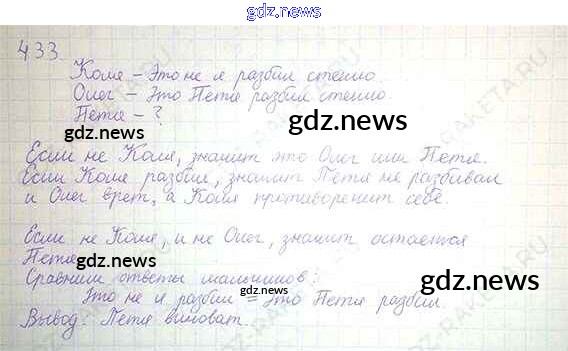 gdz.news
433
Коля - Это не я разбил стекло.
Олег - Это Петя разбил стекло.
gdz.news
Петя - ?
gdz.news
Если не Коля, значит это Олег или Петя.
Если Коля разбил, значит Петя не разбивал
и Олег врет, а Коля противоречит себе.
Если не Коля, и не Олег, значит остается
Петя.
Сравним ответы мальчиков:
gdz.news
gdz.news
Это не я разбил = Это Петя разбил.
Вывод: Петя виноват.